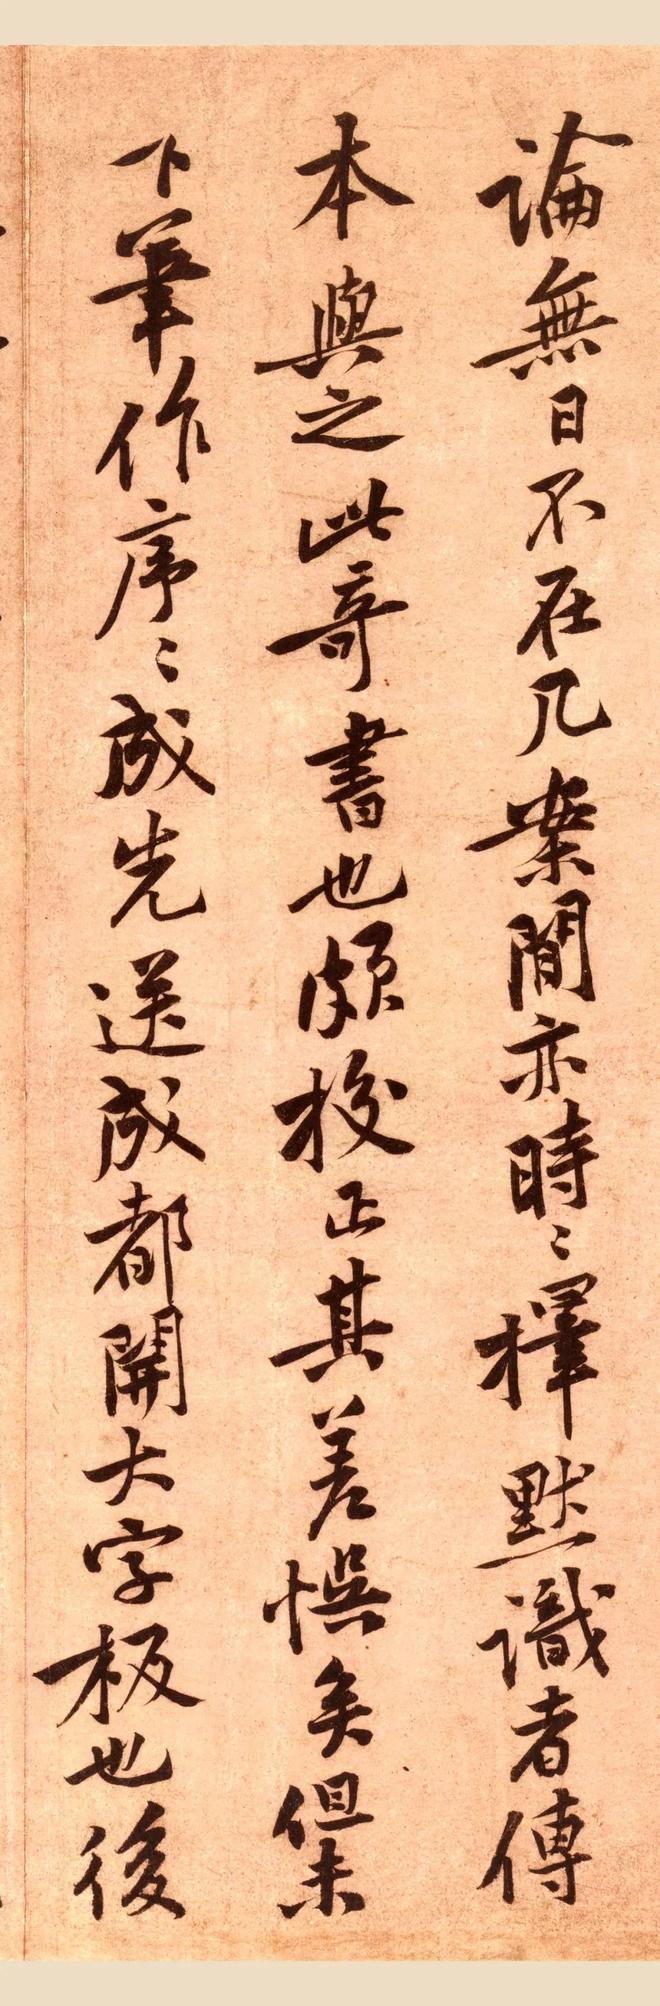 論無日不在几案間亦時〻擇默識者傳
本與之此竒書也頗校正其差悮矣但未
下筆作序〻成先送成都開大字板也後